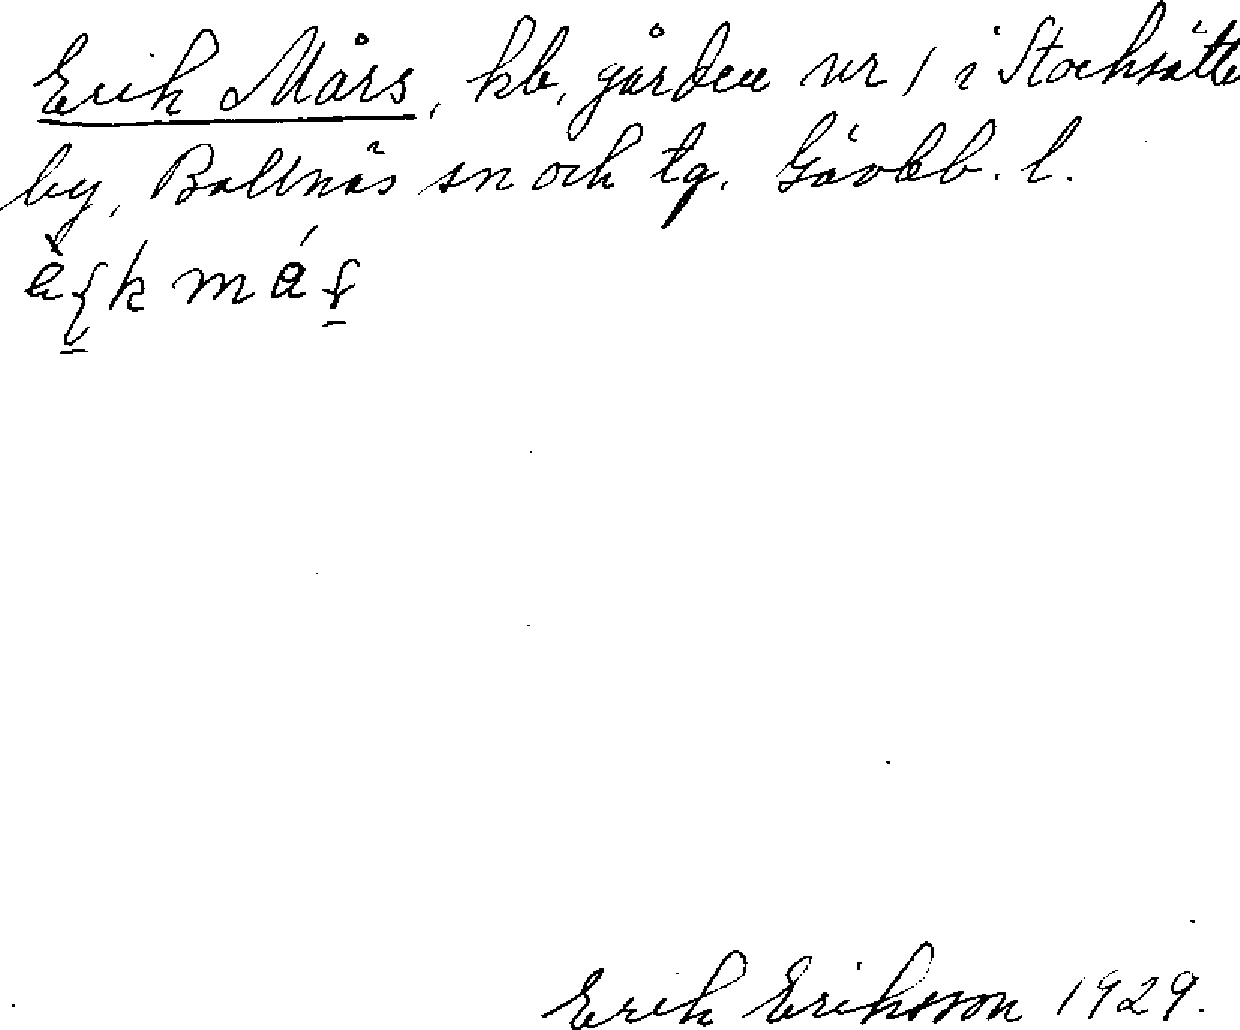 Erik Mårs, kb, gården nr 1 i Stocksätte
by, Bollnäs sn och tg. Gävleb. l.
Erik Eriksson 1929.